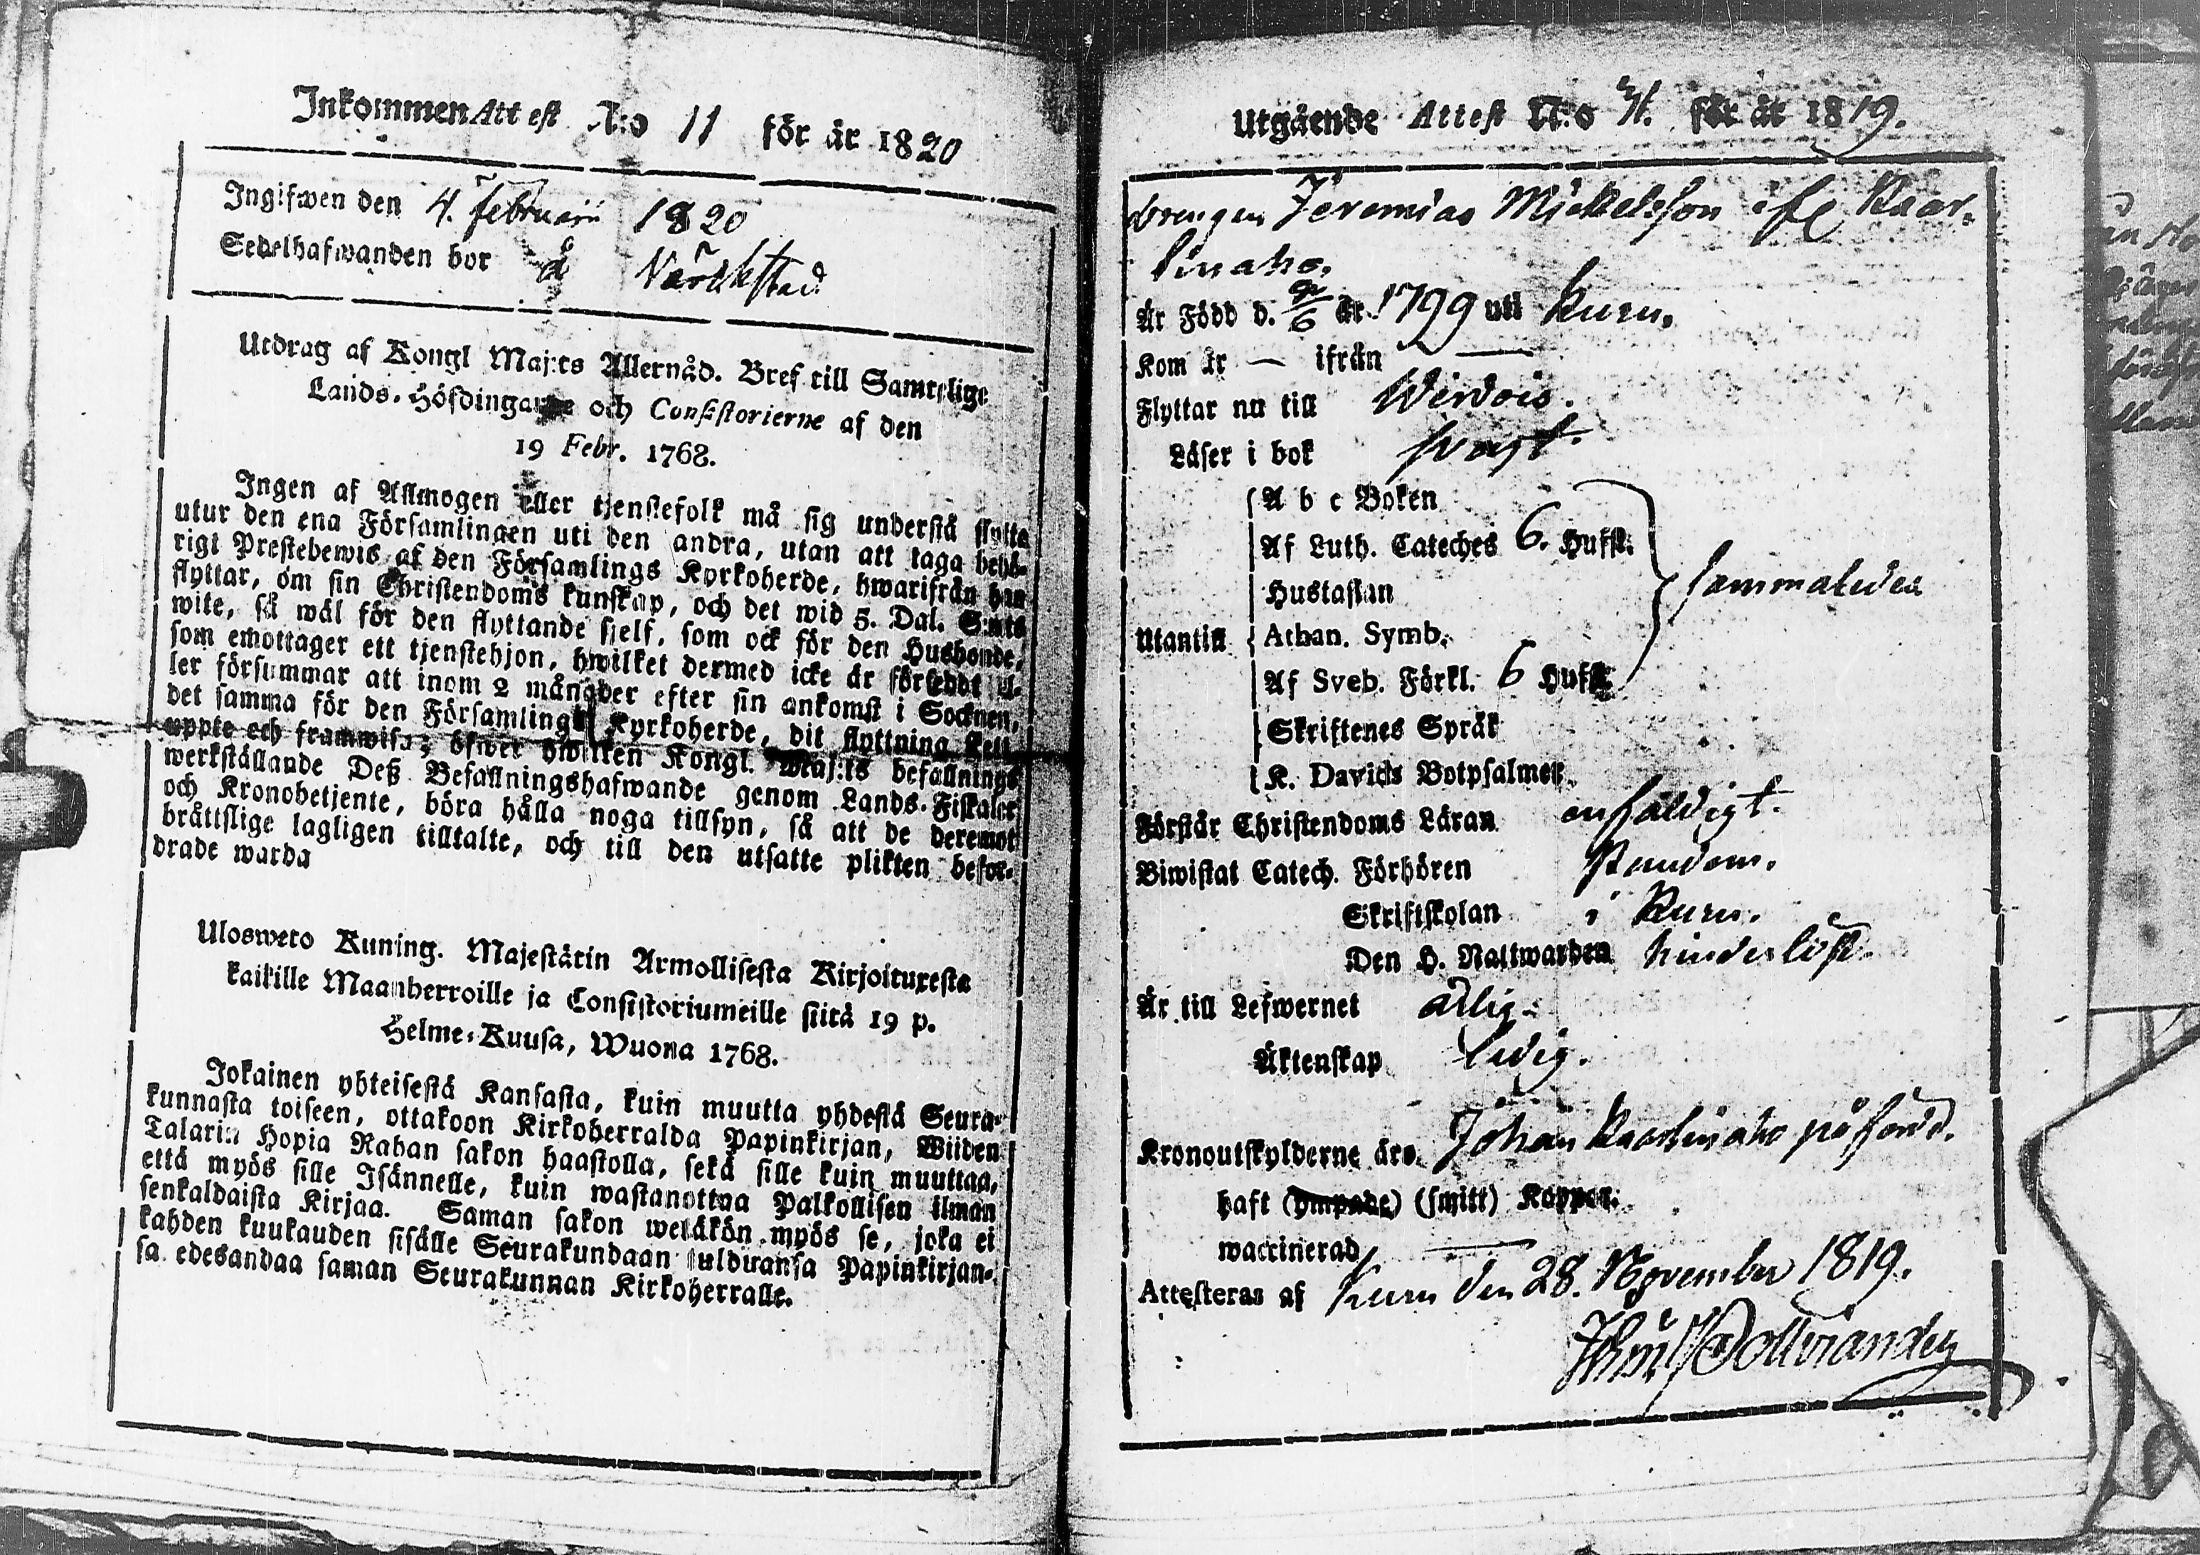 Inkommen Attest N:o 11 för år 1820
Ingifwen den 4. Februarii 1820
Sedelhafwanden bor å
Utdrag af Kongl Maj:ts Allernåd. Bref till Samtelige
Lands-Höfdingarne och Consistorierne af den
19 Febr. 1768.
Ingen af Allmogen eller tjenstefolk må sig understå flytta
utur den ena Församlingen uti den andra, utan att taga behö-
rigt Prestebewis af den Församlings Kyrkoherde, hwarifrån han
flyttar, om sin Christendoms kunskap, och det wid 5. Dal. S:mts
wite, så wäl för den flyttande sjelf, som ock för den Husbonde,
som emottager ett tjenstehjon, hwilket dermed icke är försedt el-
ler försummar att inom 2 månader efter sin ankomst i Socknen,
det samma för den Församlings Kyrkoherde, dit flyttning skett
uppte och framwisa; öfwer hwilken Kongl. Maj:ts befallnings
werkställande Deß Befallningshafwande genom Lands-Fiskaler
och Kronobetjente, böra hålla noga tillsyn, så att de deremot
bråttslige lagligen tilltalte, och till den utsatte plikten befor-
drade warda
Ulosweto Kuning. Majestätin Armollisesta Kirjoituxesta
kaikille Maanherroille ja Consistoriumeille siitä 19 p.
Helme-Kuusa, Wuonna 1768.
Jokainen yhteisestä Kansasta, kuin muutta yhdestä Seura-
kunnasta toiseen, ottakoon Kirkoherralda Papinkirjan, Wiiden
Talarin Hopia Rahan sakon haastolla, sekä sille kuin muuttaa,
että myös sille Isännelle, kuin wastanottaa Palkollisen ilman
senkaldaista Kirjaa. Saman sakon weläkön myös se, joka ei
kahden kuukauden sisälle Seurakundaan tulduansa Papinkirjan-
sa edesandaa saman Seurakunnan Kirkoherralle.
Utgående Attest N:o för år 1819.
drengen Jeremias Mickelsson ifr Kaar-
linaho.
Är Född d. 6 år 1799 uti Kuru.
Kom år — ifrån —
Flyttar nu till Wirdois.
Läser i bok swagt.
A b c Boken
Af Luth. Cateches 6. Hufst.
Hustaflan
sammaledes
Utantill Athan. Symb.
Af Sveb. Förkl. 6 Hufst.
Skriftenes Språk
K. Davids Botpsalmer
Förstår Christendoms Läran enfaldigt.
Biwistat Catech. Förhören stundom.
Skriftskolan i Kuru.
Den H. Nattwarden hinderlöst.
Är till Lefwernet ärlig.
Äktenskap ledig.
Kronoutskylderne äro Johan Kaarlinaho påförd.
haft (ympade) (smitt) Koppor.
waccinerad —
Attesteras af Kuru den 28. November 1819.